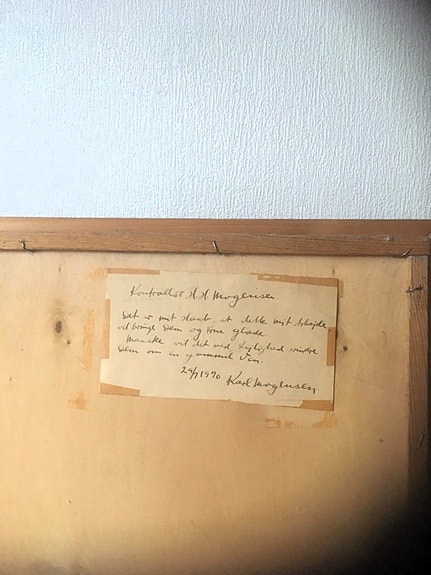 Kontrollør H. H. Mogensen.
Det er mit Haab, at dette mit Arbejde
vil bringe Dem og Frue glæde.
Maaske vil det ved Lejlighed minde
Dem om en gammel Ven.
29/7 1970 Karl Mogensen